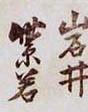 岩井
紫若